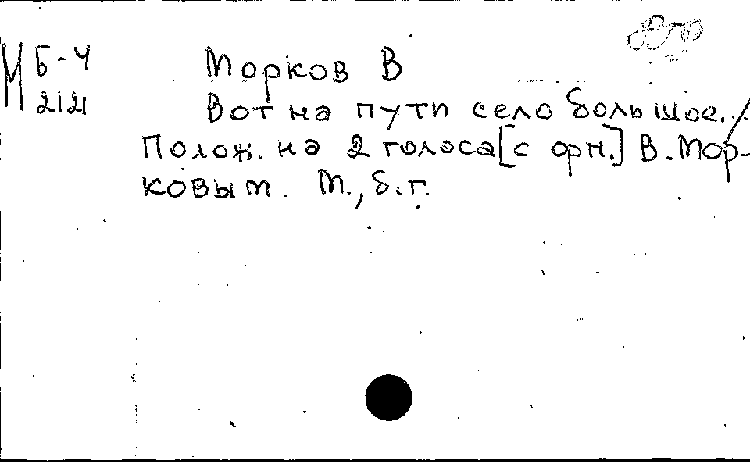 М Б-4 Морков В
212 Вот на пути село большое. /
Полож. на 2 голоса [с орн.] В. Мор-
ковым. М., б.г.